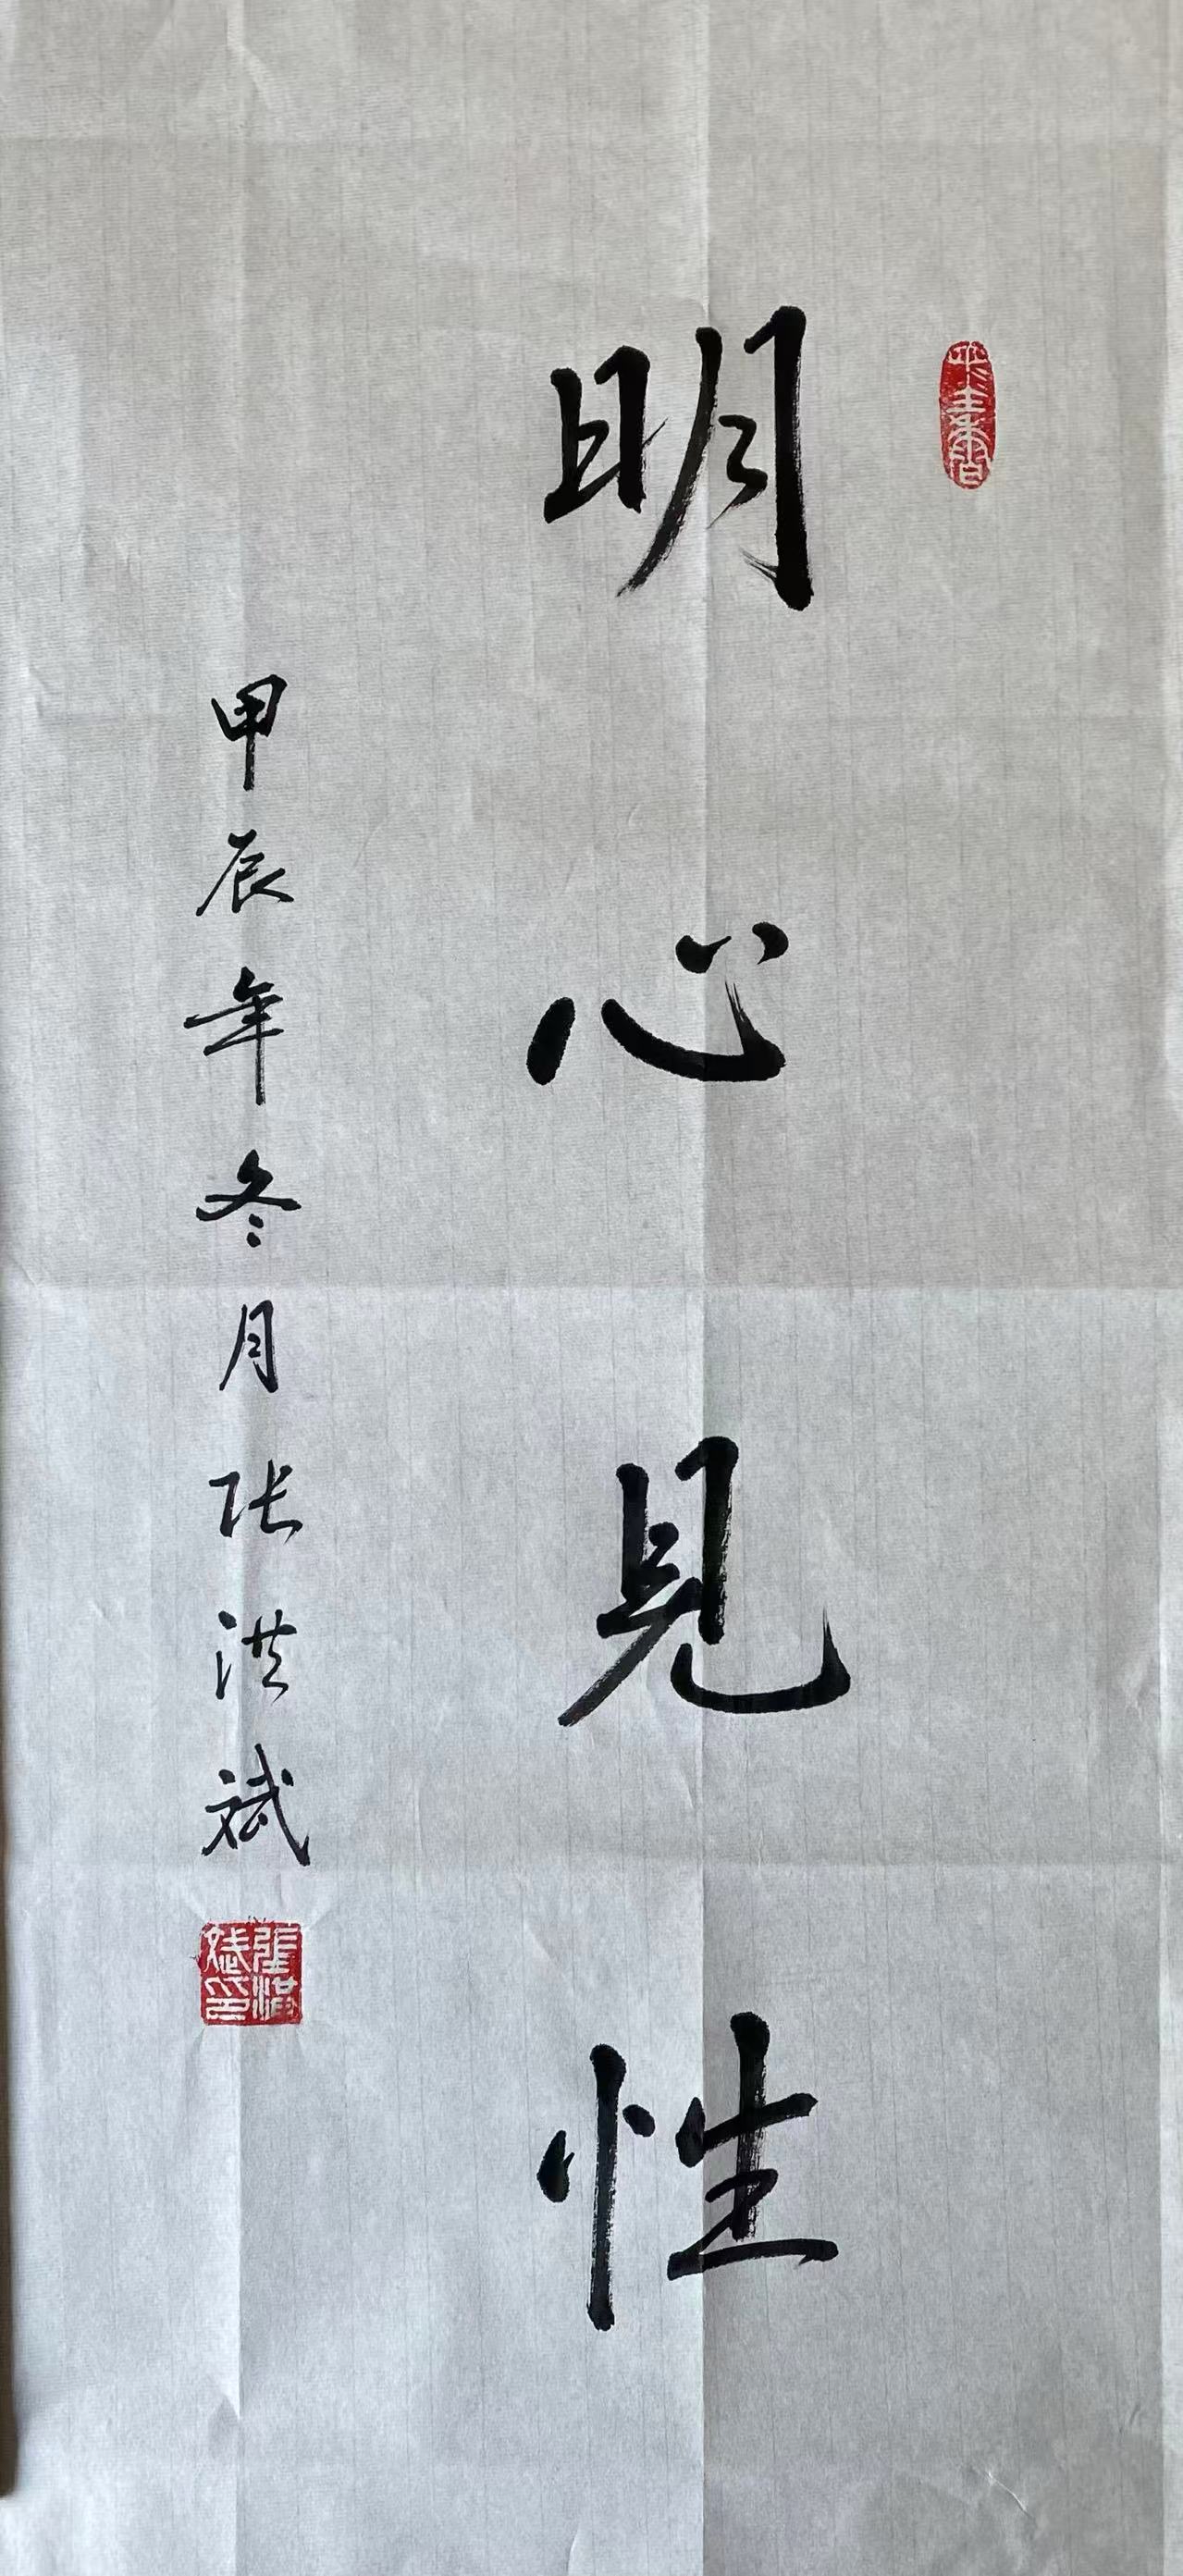 明心見性
甲辰年冬月张洪斌
張洪斌印